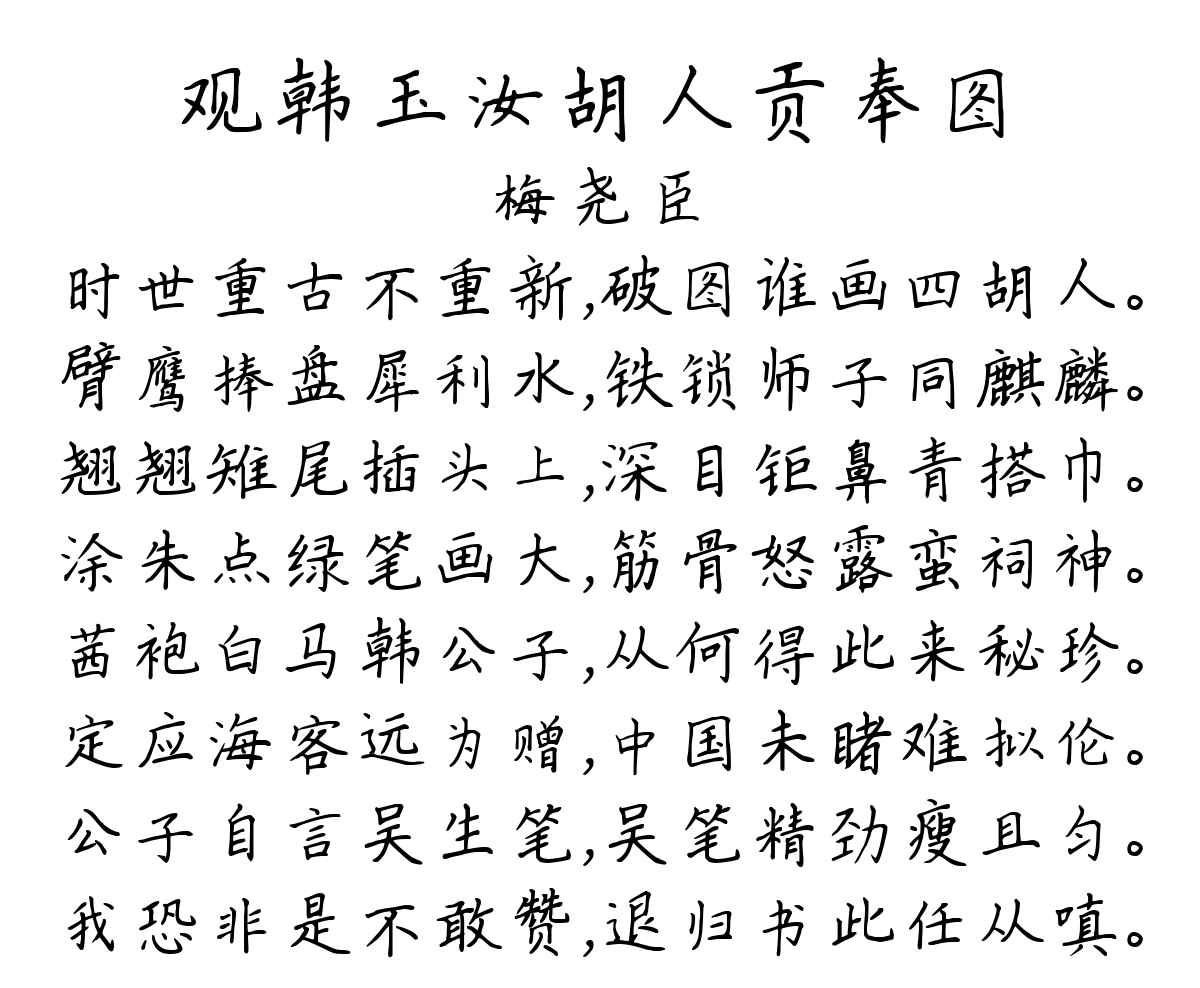 观韩玉汝胡人贡奉图
梅尧臣
时世重古不重新,破图谁画四胡人。
臂鹰捧盘犀利水,铁锁师子同麒麟。
翘翘雉尾插头上,深目钜鼻青搭巾。
涂朱点绿笔画大,筋骨怒露蛮祠神。
茜袍白马韩公子,从何得此来秘珍。
定应海客远为赠,中国未睹难拟伦。
公子自言吴生笔,吴笔精劲瘦且匀。
我恐非是不敢赞,退归书此任从嗔。